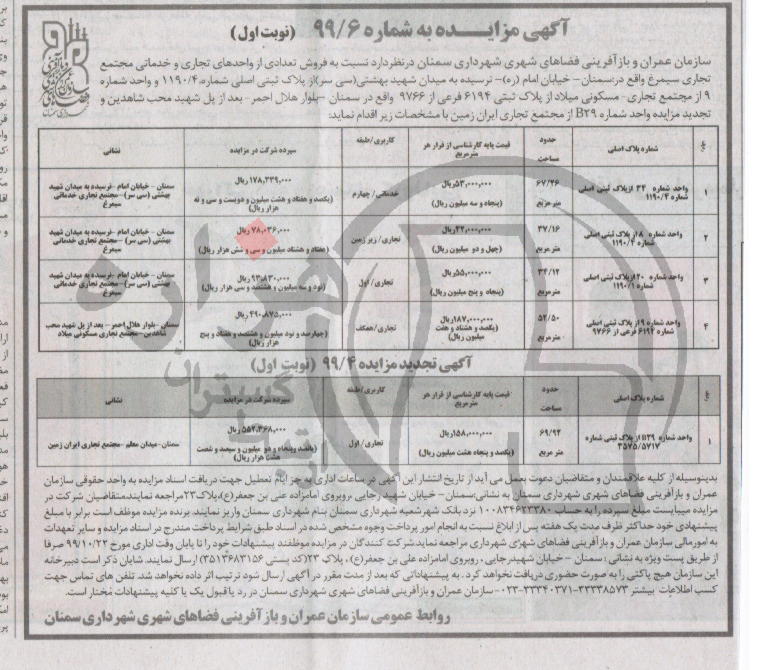 آگهی مزایده به شماره ۹۹/۶ (نوبت اول)
سازمان عمران و بازآفرینی فضاهای شهری شهرداری سمنان درنظر دارد نسبت به فروش تعدادی از واحدهای تجاری و خدماتی مجتمع
تجاری سیمرغ واقع در:سمنان- خیابان امام (ره)- نرسیده به میدان شهید بهشتی(سی سر)از پلاک ثبتی اصلی شماره۱۱۹۰/۴ و واحد شماره
۹ از مجتمع تجاری-مسکونی میلاد از پلاک ثبتی ۶۱۹۴ فرعی از ۹۷۶۶ واقع در سمنان -بلوار هلال احمر- بعد از پل شهید محب شاهدین و
تجدید مزایده واحد شماره B۲۹ از مجتمع تجاری ایران زمین با مشخصات زیر اقدام نماید:
شماره پلاک اصلی | حدود مساحت | قیمت پایه کارشناسی از قرار هر مترمربع | کاربری/طبقه | سپرده شرکت در مزایده | نشانی
۱ | واحد شماره ۳۴ ازپلاک ثبتی اصلی شماره ۱۱۹۰/۴ | ۶۷/۲۶ مترمربع | ۵۳,۰۰۰,۰۰۰ریال (پنجاه و سه میلیون ریال) | خدماتی/ چهارم | ۱۷۸,۲۳۹,۰۰۰ریال (یکصد و هفتاد و هشت میلیون و دویست و سی و نه هزار ریال) | سمنان - خیابان امام -نرسیده به میدان شهید بهشتی (سی سر)-مجتمع تجاری خدماتی سیمرغ
۲ | واحد شماره ۸از پلاک ثبتی اصلی شماره ۱۱۹۰/۴ | ۳۷/۱۶ مترمربع | ۴۲,۰۰۰,۰۰۰ریال (چهل و دو میلیون ریال) | تجاری/ زیر زمین | ۷۸,۰۳۶,۰۰۰ ریال (هفتاد و هشتاد میلیون و سی و شش هزار ریال) | سمنان - خیابان امام -نرسیده به میدان شهید بهشتی (سی سر)-مجتمع تجاری خدماتی سیمرغ
۳ | واحد شماره ۲۰از پلاک ثبتی اصلی شماره ۱۱۹۰/۱ | ۳۴/۱۲ مترمربع | ۵۵,۰۰۰,۰۰۰ریال (پنجاه و پنج میلیون ریال) | تجاری/ اول | ۹۳,۸۳۰,۰۰۰ ریال (نود و سه میلیون و هشتصد و سی هزار ریال) | سمنان - خیابان امام -نرسیده به میدان شهید بهشتی (سی سر)-مجتمع تجاری خدماتی سیمرغ
۴ | واحد شماره ۹ از پلاک ثبتی اصلی شماره ۶۱۹۴ فرعی از ۹۷۶۶ | ۵۲/۵۰ مترمربع | ۱۸۷,۰۰۰,۰۰۰ریال (یکصد و هشتاد و هفت میلیون ریال) | تجاری/ همکف | ۴۹۰,۸۷۵,۰۰۰ ریال (چهارصد و نود میلیون و هشتصد و هفتاد و پنج هزار ریال) | سمنان-بلوار هلال احمر - بعد از پل شهید محب شاهدین-مجتمع تجاری مسکونی میلاد
آگهی تجدید مزایده ۹۹/۴ (نوبت اول)
شماره پلاک اصلی | حدود مساحت | قیمت پایه کارشناسی از قرار هر مترمربع | کاربری/طبقه | سپرده شرکت در مزایده | نشانی
۱ | واحد شماره B۲۹ از پلاک ثبتی شماره ۳۵۷۵/۵۷۱۷ | ۶۹/۹۲ مترمربع | ۱۵۸,۰۰۰,۰۰۰ریال (یکصد و پنجاه هشت میلیون ریال) | تجاری/ اول | ۵۵۲,۳۶۸,۰۰۰ ریال (پانصد وپنجاه و دو میلیون و سیصد و شصت هشت هزار ریال) | سمنان-میدان معلم -مجتمع تجاری ایران زمین
بدینوسیله از کلیه علاقمندان و متقاضیان دعوت بعمل می آید از تاریخ انتشار این آگهی در ساعات اداری به جز ایام تعطیل جهت دریافت اسناد مزایده به واحد حقوقی سازمان
عمران و بازآفرینی فضاهای شهری شهرداری سمنان به نشانی:سمنان- خیابان شهید رجایی ،روبروی امامزاده علی بن جعفر(ع)،پلاک۲۳مراجعه نمایند.متقاضیان شرکت در
مزایده میبایست مبلغ سپرده را به حساب ۱۰۰۸۳۴۶۲۲۳۸۰ نزد بانک شهرشعبه شهرداری سمنان بنام شهرداری سمنان واریز نمایند. برنده مزایده موظف است برابر با مبلغ
پیشنهادی خود حداکثر ظرف مدت یک هفته پس از ابلاغ نسبت به انجام امور پرداخت وجوه مشخص شده در اسناد طبق شرایط پرداخت مندرج در اسناد مزایده و سایر تعهدات
به امورمالی سازمان عمران و بازآفرینی فضاهای شهری شهرداری مراجعه نماید.شرکت کنندگان در مزایده موظفند پیشنهادات خود را تا پایان وقت اداری مورخ ۹۹/۱۰/۲۲ صرفا
از طریق پست ویژه به نشانی : سمنان - خیابان شهیدرجایی ، روبروی امامزاده علی بن جعفر(ع) ، پلاک ۲۳(کد پستی ۳۵۱۳۶۸۳۱۵۶) ارسال نمایند. شایان ذکر است دبیرخانه
این سازمان هیچ پاکتی را به صورت حضوری دریافت نخواهد کرد . به پیشنهاداتی که بعد از مدت مقرر در آگهی ارسال شود ترتیب اثر داده نخواهد شد. تلفن های تماس جهت
کسب اطلاعات بیشتر ۳۳۳۳۸۵۷۳-۰۲۳-۳۳۳۴۰۳۷۱ -سازمان عمران و بازآفرینی فضاهای شهری شهرداری سمنان در رد یا قبول یک یا کلیه پیشنهادات مختار است.
روابط عمومی سازمان عمران و بازآفرینی فضاهای شهری شهرداری سمنان